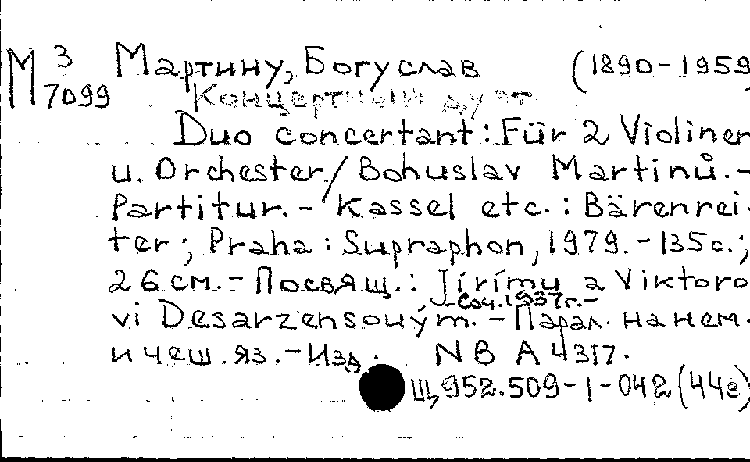 М 3 Мартину, Богуслав (1890-1959
7099 Концертный дуэт
Duo concertant: Für 2 Violinen
u. Orchester/Bohuslav Martinů.-
Partitur.- Kassel etc.: Bärenrei-
ter; Praha: Supraphon, 1979.-135с.;
26см.-Посвящ.: Jírímu a Viktoro
-Соч.1937г.-
vi Desarzensouým.-Парал. на нем.
и чеш.яз.-Изд. NB A 4317.
Щ952.509-1-042(44е)